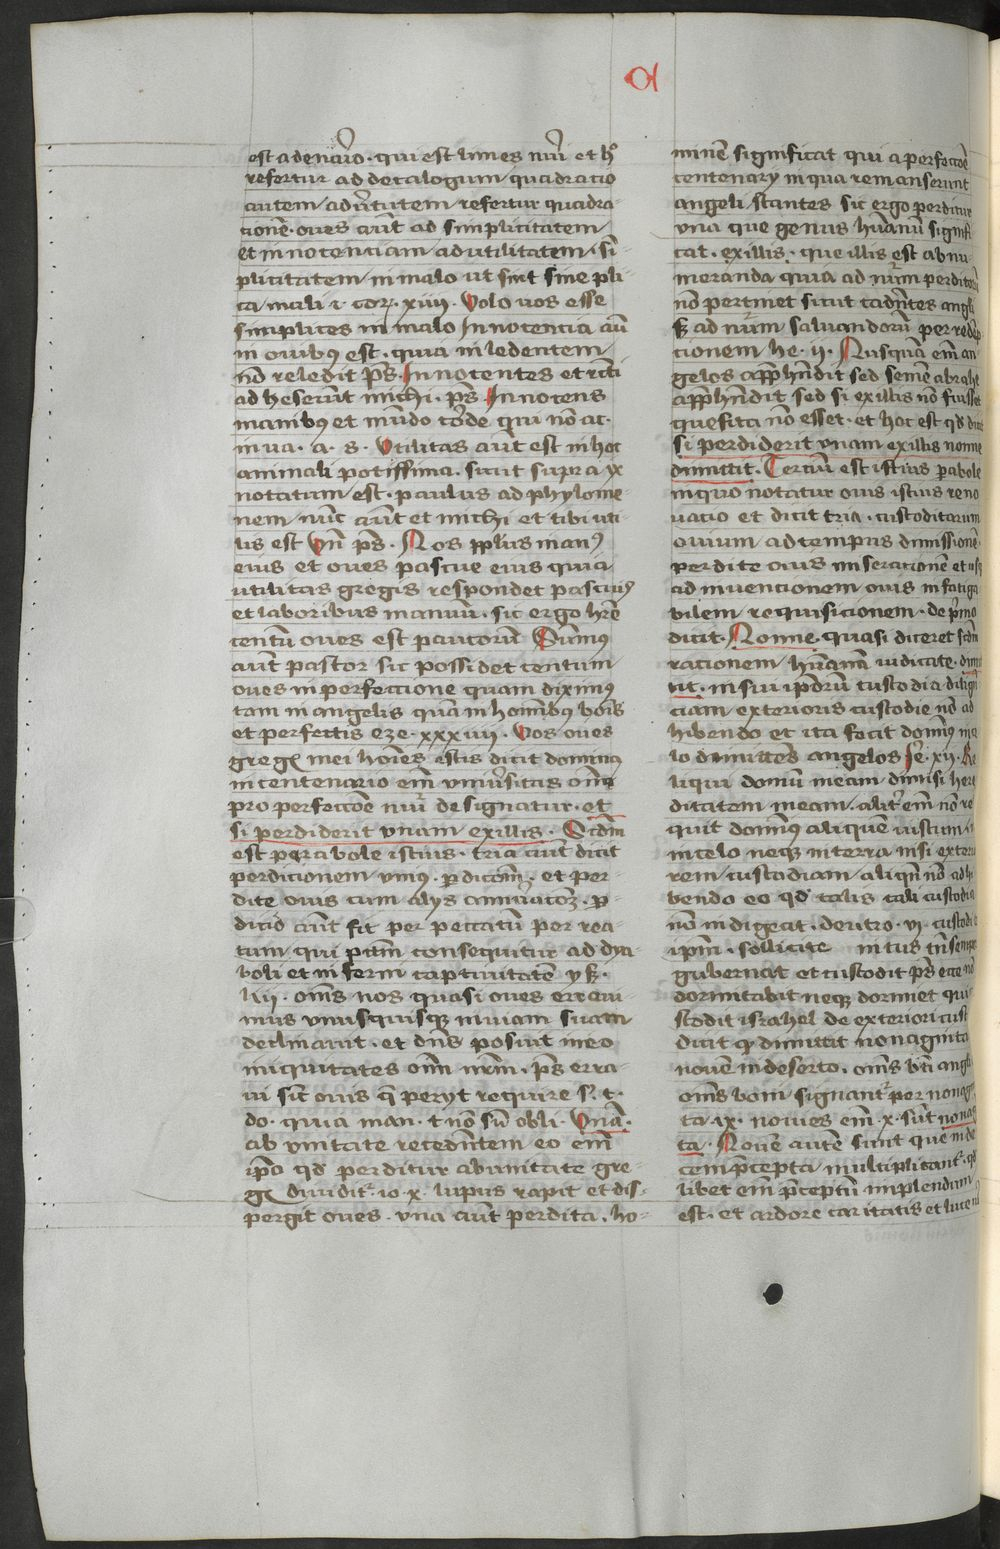 est a denario · qui est limes nūi et hͦ
refertur ad decalogum quadratio
autem ad v̾tutem refertur quadra-
tionē · oues aūt ad simplicitatem
et innocentiam ad utilitatem · si-
plicitatem in malo ut sint sine pli
ca mali i· cor · xiiii · Volo uos esse
simplices in malo Innocencia aū
in ouibus est · quia in ledentem
nō reledit ps̄ · Innocentes et rcti
ad heserūt michi · ps̄ Innocens
manibus et mūdo corde qui nō ac ·
in ua · a · s · Vtilitas aūt est in hoc
animali potissima · sicut supra ix
notatum est · paulus ad phylome
nem nūc aūt et michi et tibi uti
lis est Vn̄ ps̄ · Nos pplus man9
eius et oues pascue eius quia
utilitas gregis respondet pascuis
et laboribus manuū · sic ergo hr̄e
centū oues est paucorū Sum̄us
aūt pastor sic possidet centum
oues in perfectione quam diximus
tam in angelis quā in hominibus bois
et perfectis eze · xxxiiii · Vos oues
greg̃ mei hoīes estis dicit dominus
in centenario em̄ vniuersitas om̄is
pro perfectōe nūi designatur · et
si perdiderit vnam ex illis · Scdm
est parabole istius · tria aūt dicit
perdicionem vnius · pdicōem · et per-
dite ouis cum alys annuatōz · p-
dicio aūt fit per peccatum per rea-
tum qui pctm̄ consequitur ad dya
boli et inferni captiuitatē ys̄ ·
liii · om̄s nos quasi oues erraui
mus vnusquisqz in uiam suam
declinauit · et dn̄s posuit in eo
iniquitates om̄ nr̄m · ps̄ erra-
ui sic̄ ouis q̄ peryt require s · t ·
do · quia man · t nō sū obli · Vnā ·
ab vnitate recedentem eo em̄
ipo qd̄ perditur ab unitate gre-
g̃ diuidit᷑ io · x · lupus rapit et dis-
pergit oues · vna aūt perdita · ho-
minē significat qui a perfectōe
centenary in qua remanserunt
angeli stantes sic ergo perditur
vna que genus hūanū signifi
cat · ex illis · que illis est abnu-
meranda quia ad nūm perditorū
nō pertinet sicut cadn̄tes angli
s̄ ad nūm saluandorū per redēp
cionem he · ii · Nusquā em̄ an-
gelos app̄hn̄dit sed semē abrahe
app̄hn̄dit sed si ex illis nō fuisset
quesita nō esset · et hoc est qd̄ dicit
si perdiderit vnam ex illis nonne
dimittit · Terciū est istius pabole
in quo notatur ouis istius reno
uacio et dicit tria · custoditarum
ouium ad tempus dimissionē ·
perdite ouis miseracionē et usqz
ad inuencionem ouis infatiga
bilem requisicionem · de pͥmo
dicit · Nonne · quasi diceret scdm
rationem hūanā iudicate · dimit
tit · in sui ipārū custodia dilign̄
ciam exterioris custodie nō ad
hibendo et ita fecit domin9 in ce
lo dimittēs angelos Ie · xii · Re
liqui domū meam dimisi here
ditatem meam · alit᷑ em̄ nō re
quit domin9 aliquē iustum
in celo neqz in terra nisi exterio
rem custodiam aliqn̄ nō adhi
bendo eo qd̄ talis tali custodia
nō indigeat · deutro · vi · custodi
ipm̄ · sollicite in tus tn̄ semper
gubernat et custodit ps̄ ecce nō
dormitabit neqz dormiet qui cu
stodit israhel de exteriori cust
dicit qz dimittit nonaginta
nouē in deserto · om̄s bn̄i angli
om̄s boni signant᷑ per nonagin
ta ix · nouies em̄ · x · sūt nonagin
ta · Nouē autē sunt que in de
cem p̄cepta multiplicant᷑ · qd̄
libet em̄ p̄ceptū implendum
est · et ardore caritatis et luce